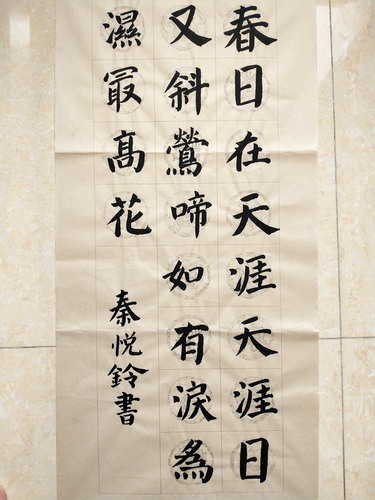 春日在天涯天涯日
又斜鶯啼如有淚爲
濕冣髙花
秦悦鈴書